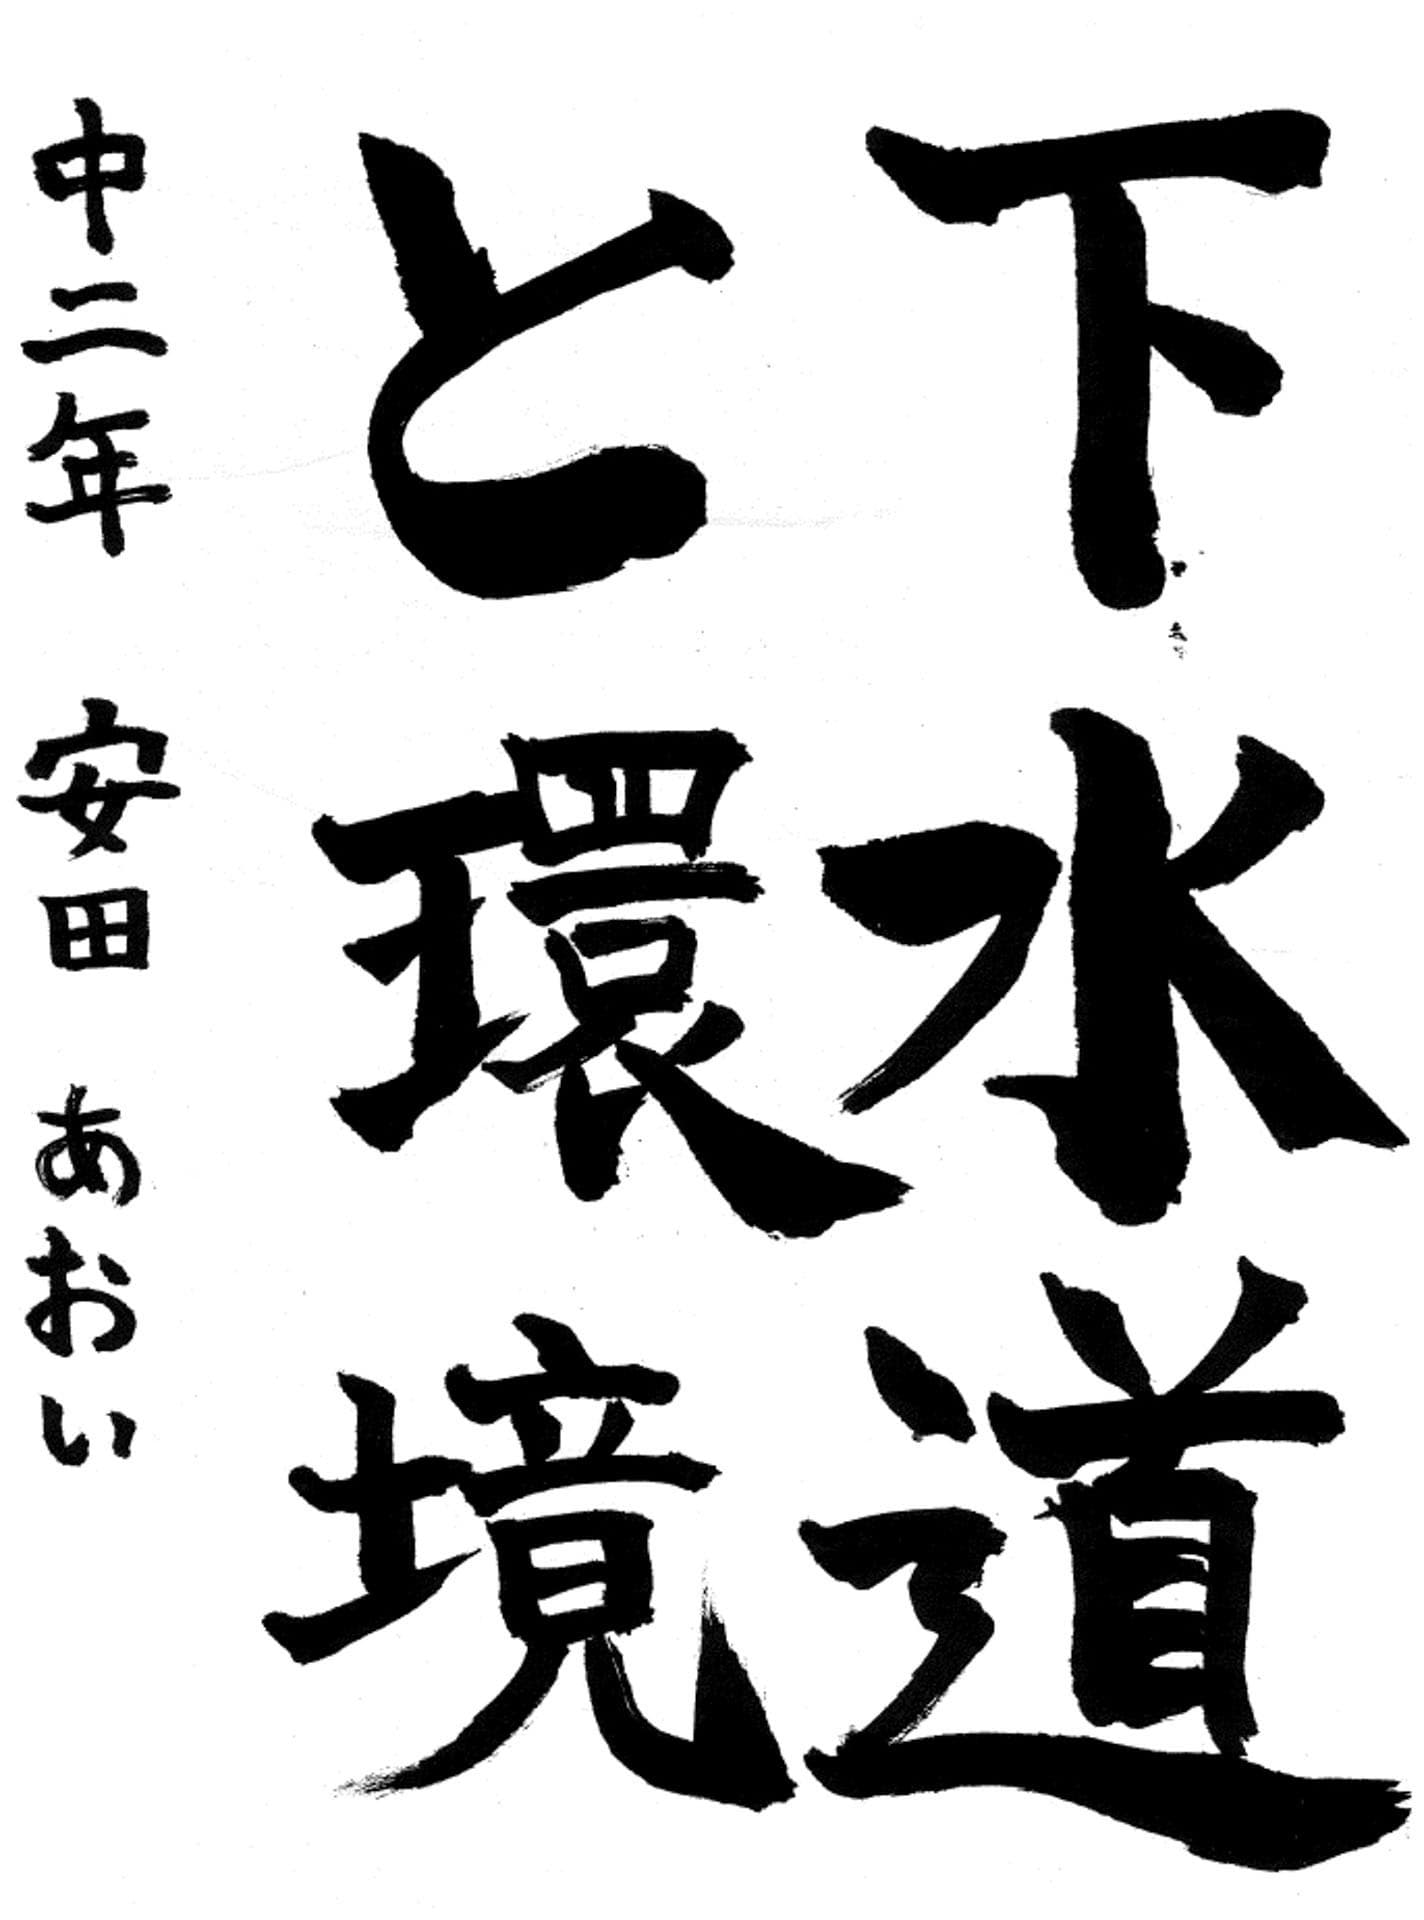 下水道
と環境
中二年 安田 あおい